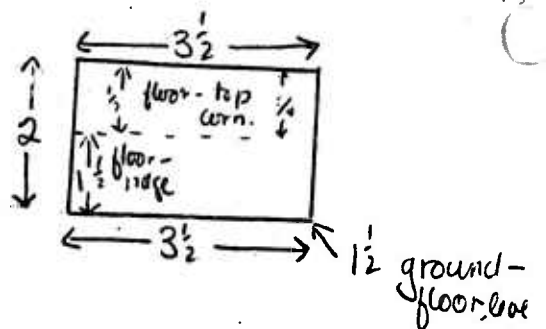 3 1/2
floor - top
corn.
2
1 1/2 floor -
ridge
3 1/2
1 1/2 ground -
floor,